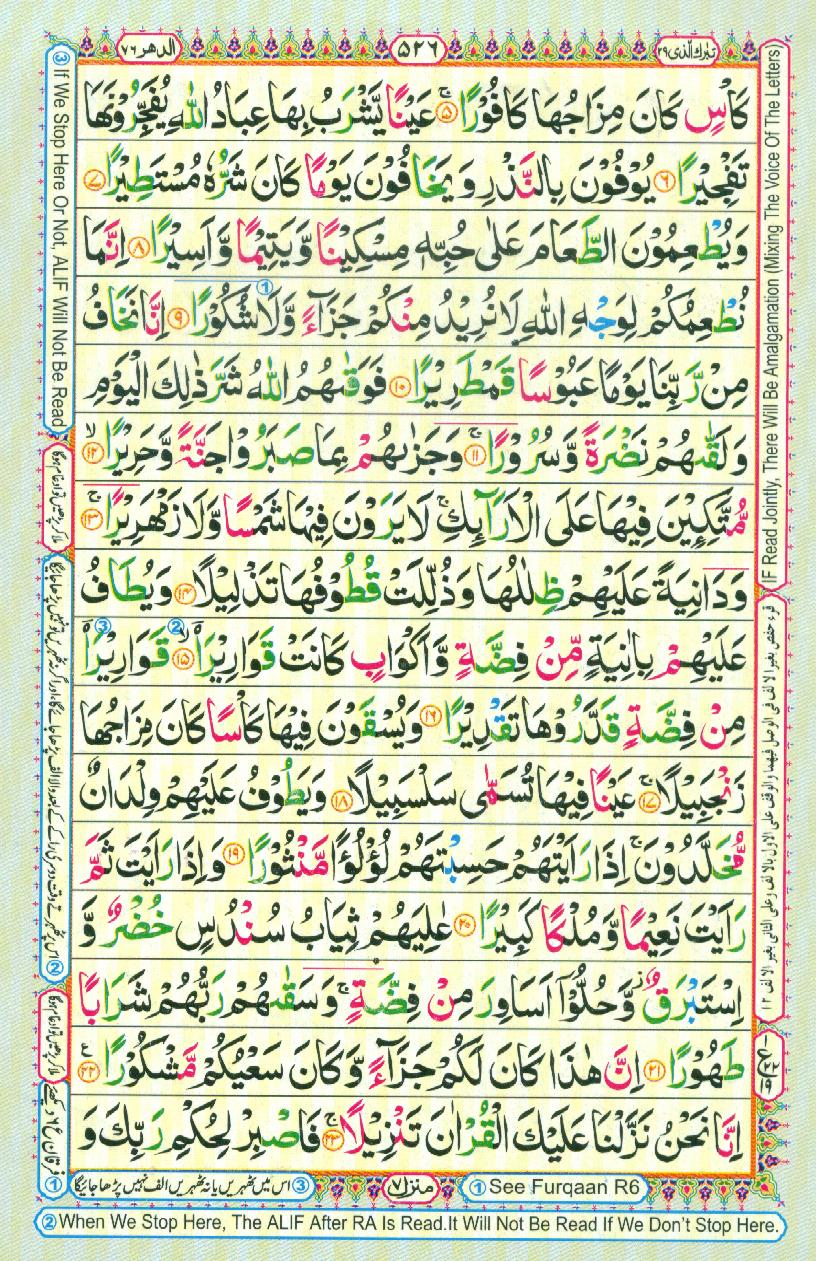 تبٰرك الّذي ٢٩
٥٢٦
الدهر ٧٦
كَاْسٍ كَانَ مِزَاجُهَا كَافُوْرًا ۝٥ۚ عَيْنًا يَّشْرَبُ بِهَا عِبَادُ اللّٰهِ يُفَجِّرُوْنَهَا
تَفْجِيْرًا ۝٦ يُوْفُوْنَ بِالنَّذْرِ وَيَخَافُوْنَ يَوْمًا كَانَ شَرُّهٗ مُسْتَطِيْرًا ۝٧
وَيُطْعِمُوْنَ الطَّعَامَ عَلٰى حُبِّهٖ مِسْكِيْنًا وَّيَتِيْمًا وَّاَسِيْرًا ۝٨ اِنَّمَا
نُطْعِمُكُمْ لِوَجْهِ اللّٰهِ لَا نُرِيْدُ مِنْكُمْ جَزَآءً وَّلَا شُكُوْرًا ۝٩ اِنَّا نَخَافُ
مِنْ رَّبِّنَا يَوْمًا عَبُوْسًا قَمْطَرِيْرًا ۝١٠ فَوَقٰىهُمُ اللّٰهُ شَرَّ ذٰلِكَ الْيَوْمِ
وَلَقّٰىهُمْ نَضْرَةً وَّسُرُوْرًا ۝١١ۚ وَجَزٰىهُمْ بِمَا صَبَرُوْا جَنَّةً وَّحَرِيْرًا ۝١٢ۙ
مُّتَّكِـِٕيْنَ فِيْهَا عَلَى الْاَرَآىِٕكِۚ لَا يَرَوْنَ فِيْهَا شَمْسًا وَّلَا زَمْهَرِيْرًا ۝١٣ۚ
وَدَانِيَةً عَلَيْهِمْ ظِلٰلُهَا وَذُلِّلَتْ قُطُوْفُهَا تَذْلِيْلًا ۝١٤ وَيُطَافُ
عَلَيْهِمْ بِاٰنِيَةٍ مِّنْ فِضَّةٍ وَّاَكْوَابٍ كَانَتْ قَوَارِيْرَا۠ ② ۝١٥ۙ قَوَارِيْرَا۠ ③
مِنْ فِضَّةٍ قَدَّرُوْهَا تَقْدِيْرًا ۝١٦ وَيُسْقَوْنَ فِيْهَا كَاْسًا كَانَ مِزَاجُهَا
زَنْجَبِيْلًا ۝١٧ۚ عَيْنًا فِيْهَا تُسَمّٰى سَلْسَبِيْلًا ۝١٨ وَيَطُوْفُ عَلَيْهِمْ وِلْدَانٌ
مُّخَلَّدُوْنَۚ اِذَا رَاَيْتَهُمْ حَسِبْتَهُمْ لُؤْلُؤًا مَّنْثُوْرًا ۝١٩ وَاِذَا رَاَيْتَ ثَمَّ
رَاَيْتَ نَعِيْمًا وَّمُلْكًا كَبِيْرًا ۝٢٠ عٰلِيَهُمْ ثِيَابُ سُنْدُسٍ خُضْرٌ وَّ
اِسْتَبْرَقٌ ۡ وَّحُلُّوْۤا اَسَاوِرَ مِنْ فِضَّةٍۚ وَسَقٰىهُمْ رَبُّهُمْ شَرَابًا
طَهُوْرًا ۝٢١ اِنَّ هٰذَا كَانَ لَكُمْ جَزَآءً وَّكَانَ سَعْيُكُمْ مَّشْكُوْرًا ۝٢٢ ع
اِنَّا نَحْنُ نَزَّلْنَا عَلَيْكَ الْقُرْاٰنَ تَنْزِيْلًا ۝٢٣ۚ فَاصْبِرْ لِحُكْمِ رَبِّكَ وَ
IF Read Jointly, There Will Be Amalgamation (Mixing The Voice Of The Letters)
قرء حفص بغير الالف فى الوصل فيهما والوقف على الاول بالالف وعلى الثانى بغير الالف ١٢
③ If We Stop Here Or Not, ALIF Will Not Be Read
ملا کر پڑھیں تو ادغام ہوگا
ملا کر پڑھیں تو ادغام ہوگا
① فرقان ع ٦ دیکھئے
③ اس میں ٹھہریں یا نہ ٹھہریں الف نہیں پڑھا جائیگا
منزل ٧
① See Furqaan R6
② When We Stop Here, The ALIF After RA Is Read.It Will Not Be Read If We Don't Stop Here.